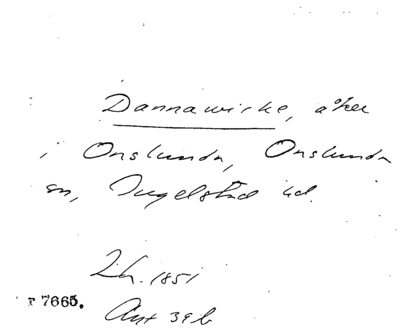 Dannawirke, åker
i Onslunda, Onslunda
sn, Ingelstad hd.
Lh. 1851
F 7665.
Ant 39 b